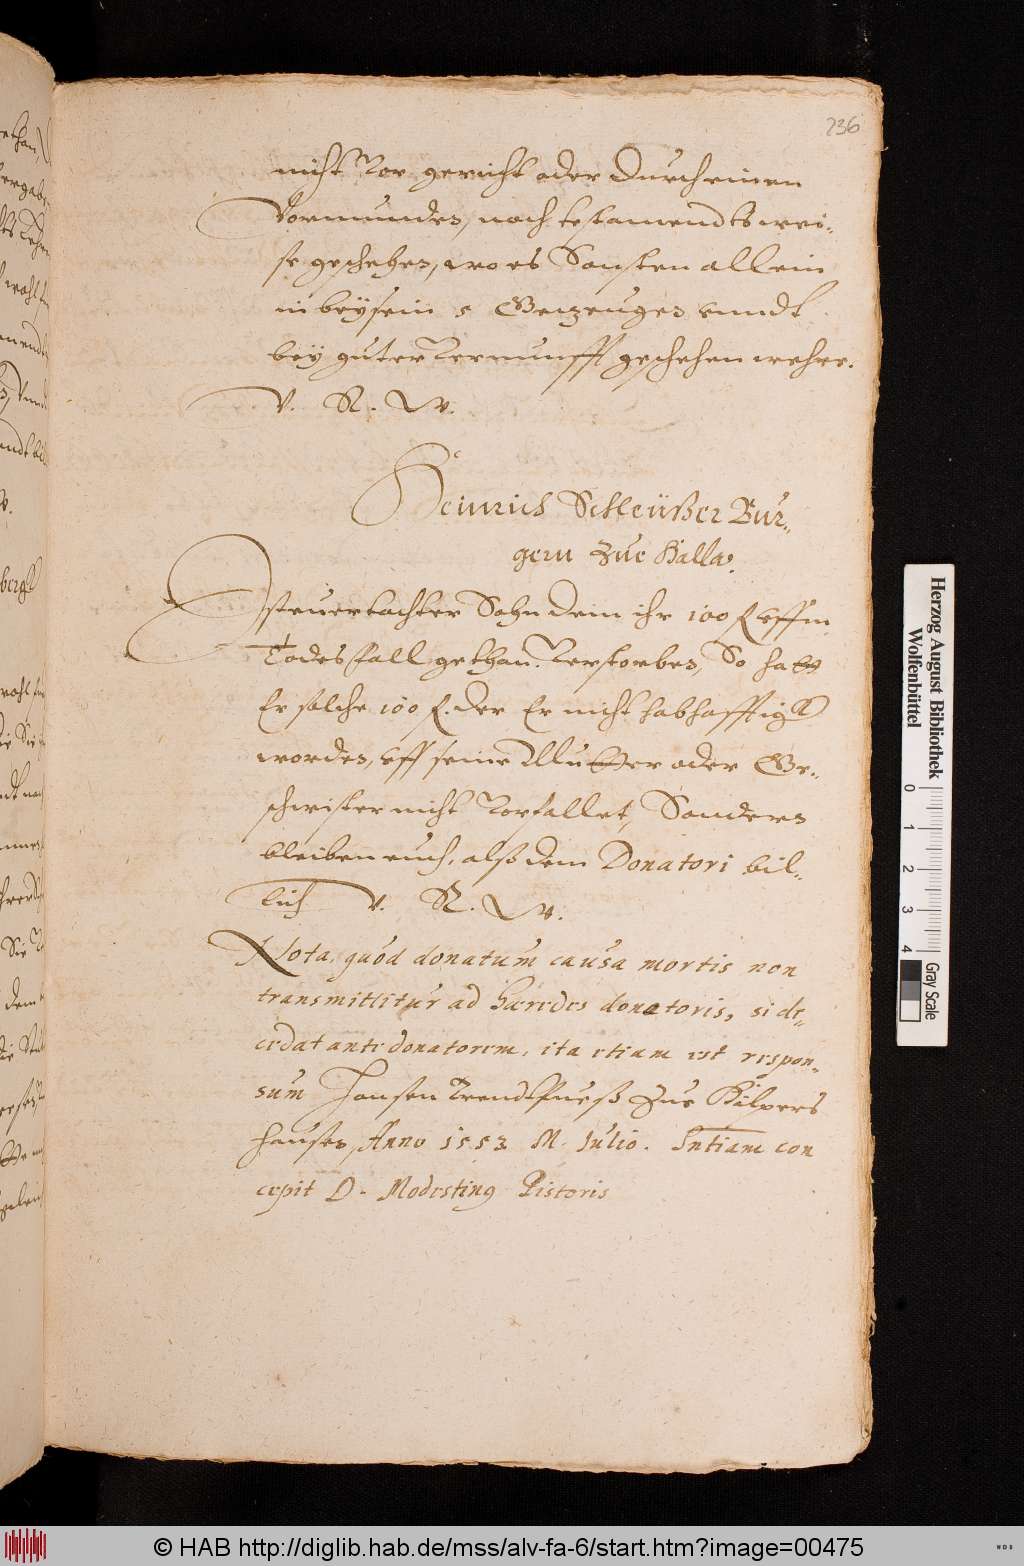 236
nicht Vor gericht oder durch einen
Vormunden, noch testamendts wei-
se geschehen, wo es Sonsten allein
in beysein 5 Gezeugen unndt
bey guter Vernunfft geschehen wehre.
V. R. W.
Heinrich Schleüßer Bur-
gern zue Halla.
Ist euer tochter Sohn dem ihr 100 f. uff m
Todesfall gethan. Verstorben, So hatt
Er solche 100 f. der Er nicht habhafftigk
worden, uff seine Mutter oder Ge-
schwister nicht Vorfallet, Sondern
bleiben euch, alß dem Donatori bil-
lich V. R. W.
Nota, quód donatum causa mortis non
transmittitur ad hæredes donatoris, si de-
cedat ante donatorem, ita etiam est respon-
sum Hansen Trendtfueß zue Hilpers
hausen, Anno 1553 M. Julio. Sntiam con
cepit D. Modestinus Pistoris
Herzog August Bibliothek
Wolfenbüttel
0 1 2 3 4
Gray Scale
© HAB http://diglib.hab.de/mss/alv-fa-6/start.htm?image=00475